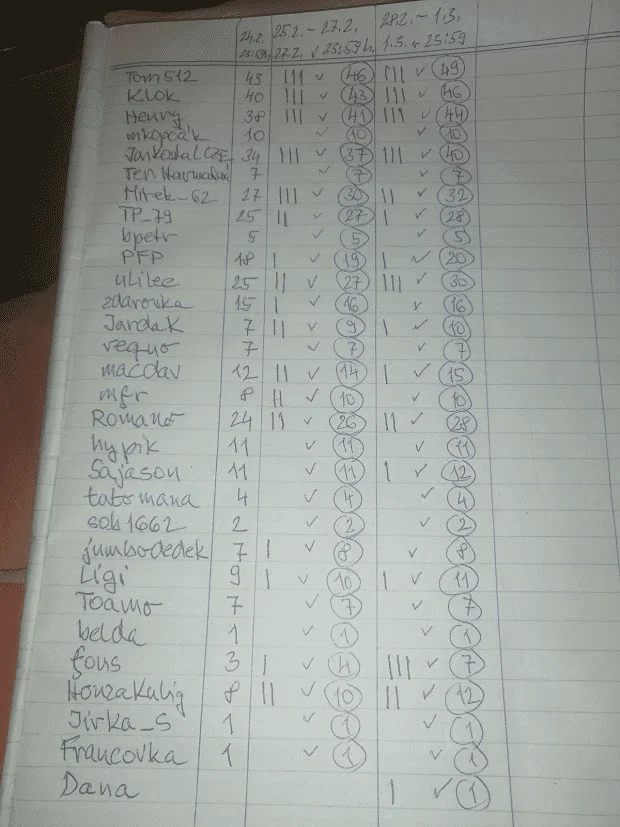 24.2. 25.2. - 27.2. 28.2. - 1.3.
23:59h. 27.2. ✓ 23:59 h. 1.3. ✓ 23:59
Tom512 43 III ✓ 46 III ✓ 49
Klok 40 III ✓ 43 III ✓ 46
Henry 38 III ✓ 41 III ✓ 44
mkopčák 10 ✓ 10 ✓ 10
JanKostalCZE 34 III ✓ 37 III ✓ 40
7 ✓ 7 ✓ 7
Mirek_62 27 III ✓ 30 II ✓ 32
TP_79 25 II ✓ 27 I ✓ 28
bpetr 5 ✓ 5 ✓ 5
PFP 18 I ✓ 19 I ✓ 20
ulilec 25 II ✓ 27 III ✓ 30
zdarovka 15 I ✓ 16 ✓ 16
JardaK 7 II ✓ 9 I ✓ 10
requo 7 ✓ 7 ✓ 7
macdav 12 II ✓ 14 I ✓ 15
mfr 8 II ✓ 10 ✓ 10
Romano 24 II ✓ 26 II ✓ 28
hypik 11 ✓ 11 ✓ 11
Sajason 11 ✓ 11 I ✓ 12
tatomana 4 ✓ 4 ✓ 4
sob1662 2 ✓ 2 ✓ 2
jumbodedek 7 I ✓ 8 ✓ 8
Ligi 9 I ✓ 10 I ✓ 11
Toamo 7 ✓ 7 ✓ 7
belda 1 ✓ 1 ✓ 1
fous 3 I ✓ 4 III ✓ 7
HonzaKulig 8 II ✓ 10 II ✓ 12
Jirka_S 1 ✓ 1 ✓ 1
Francovka 1 ✓ 1 ✓ 1
Dana I ✓ 1